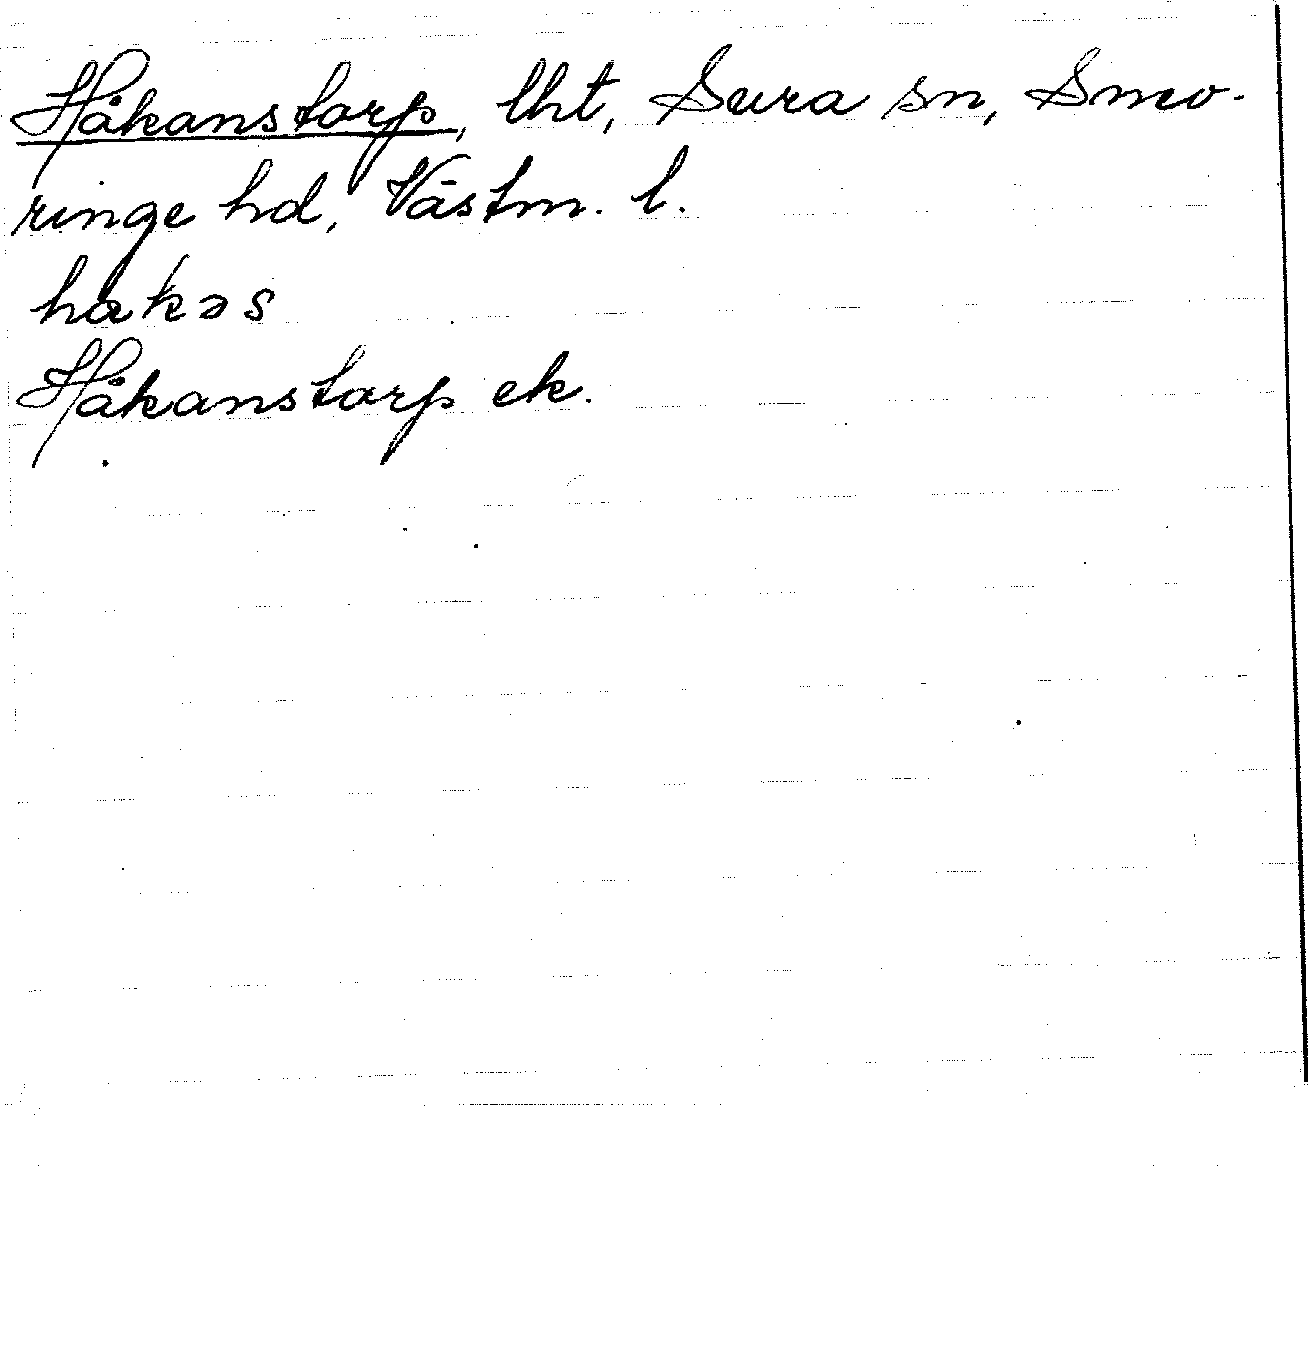 Håkanstorp, lht, Sura sn, Snev-
ringe hd, Västm. l.
håkəs
Håkanstorp ek.